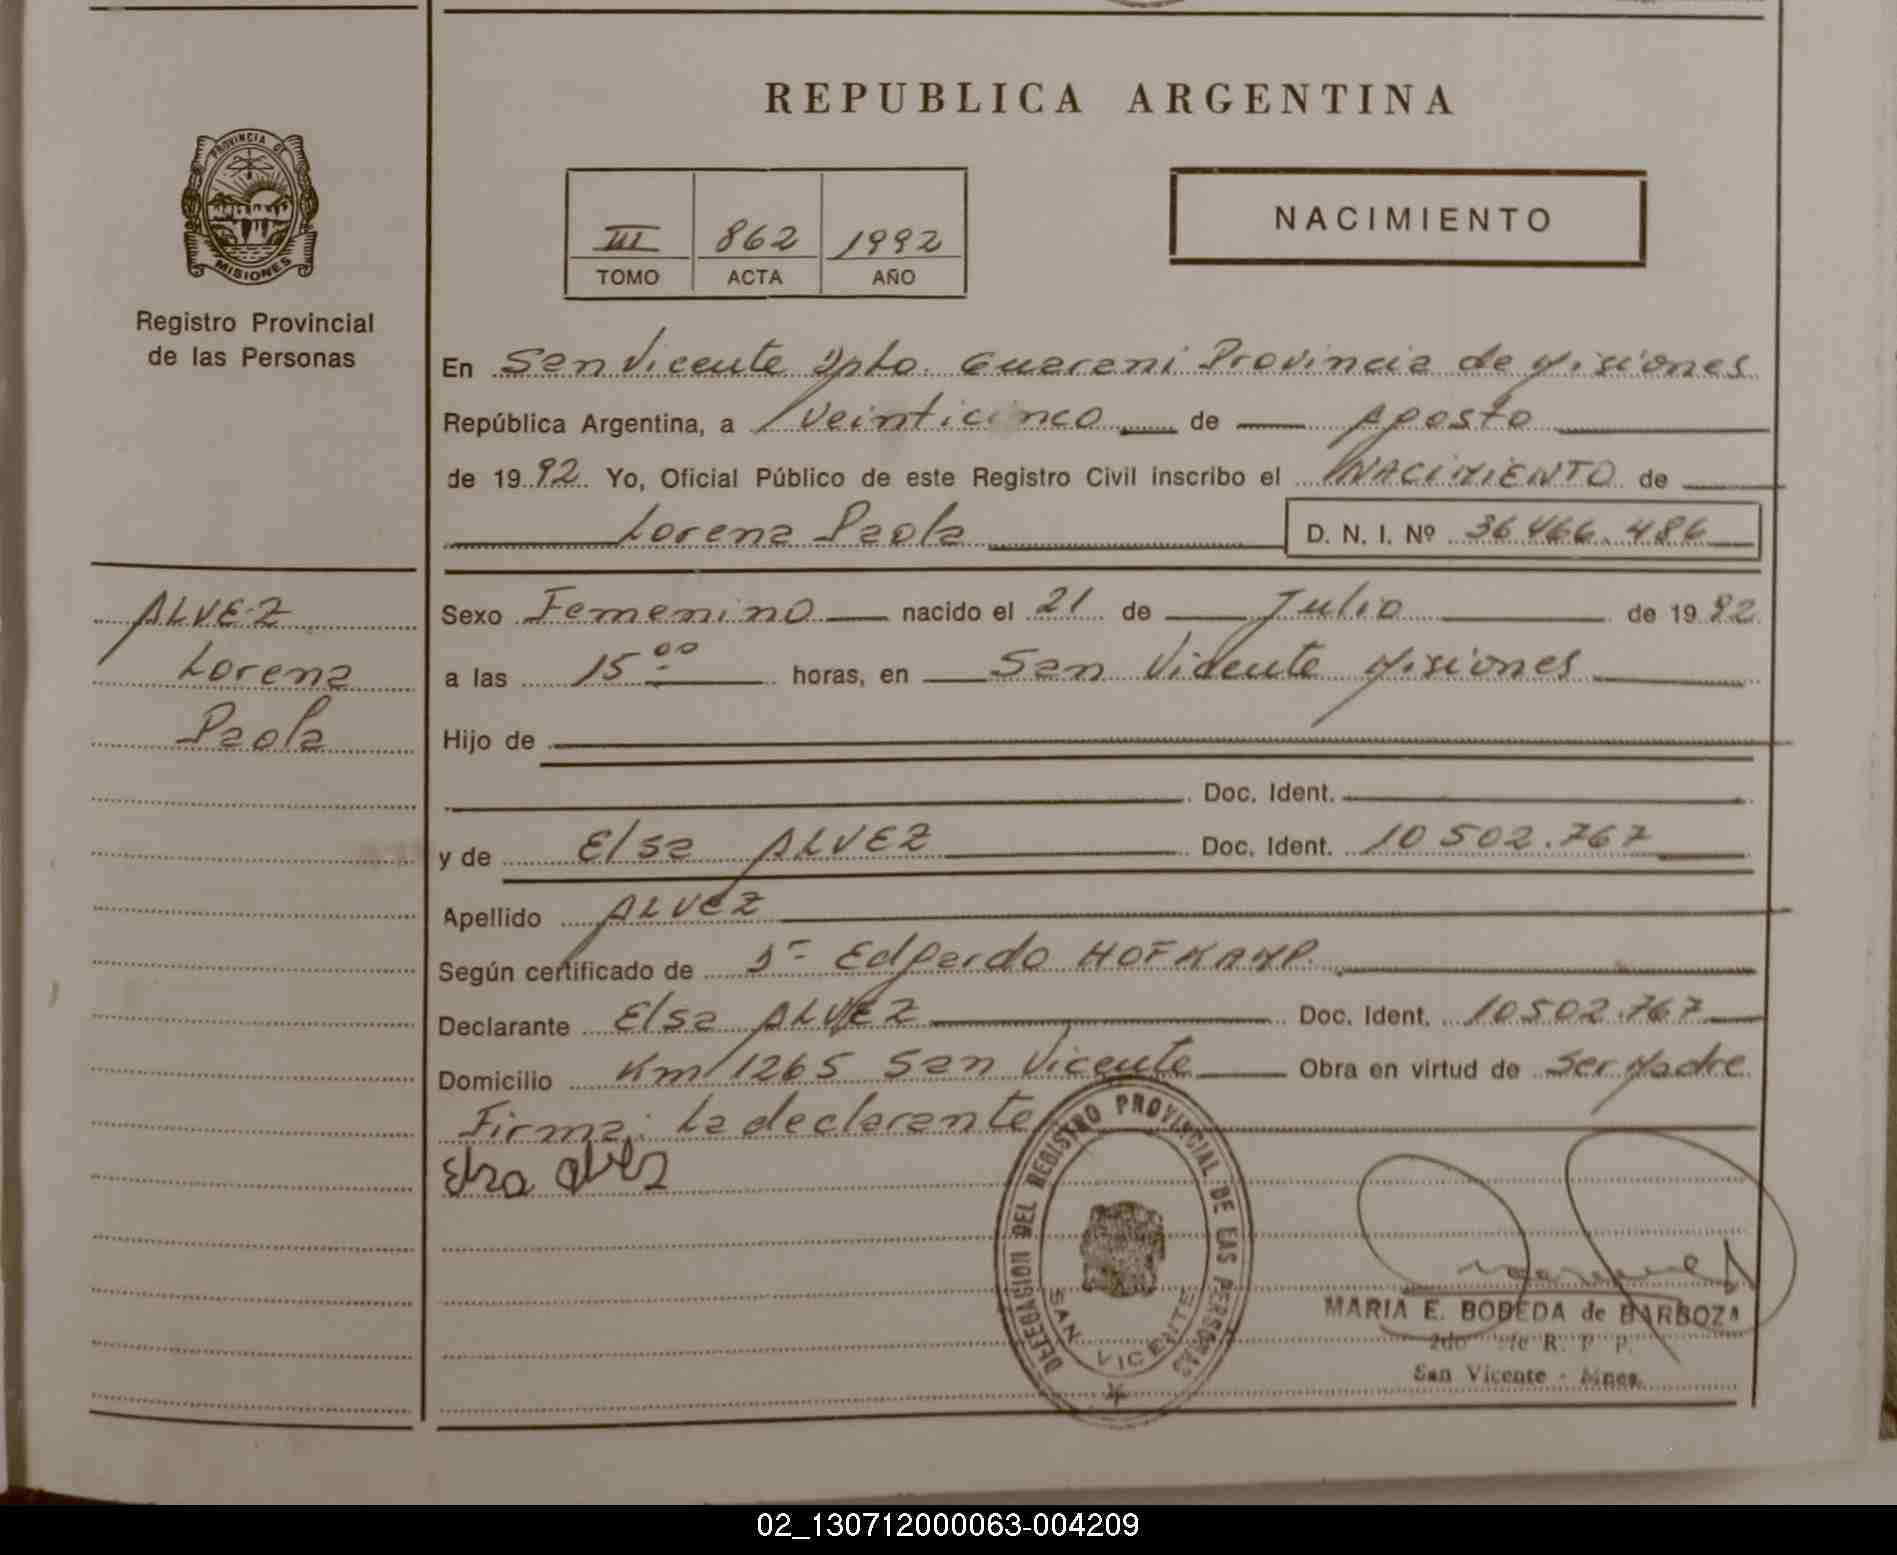 REPUBLICA ARGENTINA
PROVINCIA DE
MISIONES
Registro Provincial
de las Personas
III 862 1992
TOMO ACTA AÑO
NACIMIENTO
En San Vicente Dpto. Guarani Provincia de Misiones
República Argentina, a veinticinco de Agosto
de 1992. Yo, Oficial Público de este Registro Civil inscribo el NACIMIENTO de
Lorena Paola D. N. I. Nº 36.466.486
ALVEZ
Lorena
Paola
Sexo Femenino nacido el 21 de Julio de 1992.
a las 15 00 horas, en San Vicente Misiones
Hijo de
Doc. Ident.
y de Elsa ALVEZ Doc. Ident. 10 502.767
Apellido ALVEZ
Según certificado de Edgardo HOFKAMP.
Declarante Elsa ALVEZ Doc. Ident. 10.502.767
Domicilio Km 1265 San Vicente Obra en virtud de Ser Madre
Firma: La declarante
Elsa alvez
DELEGACION DEL REGISTRO PROVINCIAL DE LAS PERSONAS
SAN VICENTE
MARIA E. BOBEDA de BARBOZA
2do R. P. P.
San Vicente - Mnes.
02_130712000063-004209